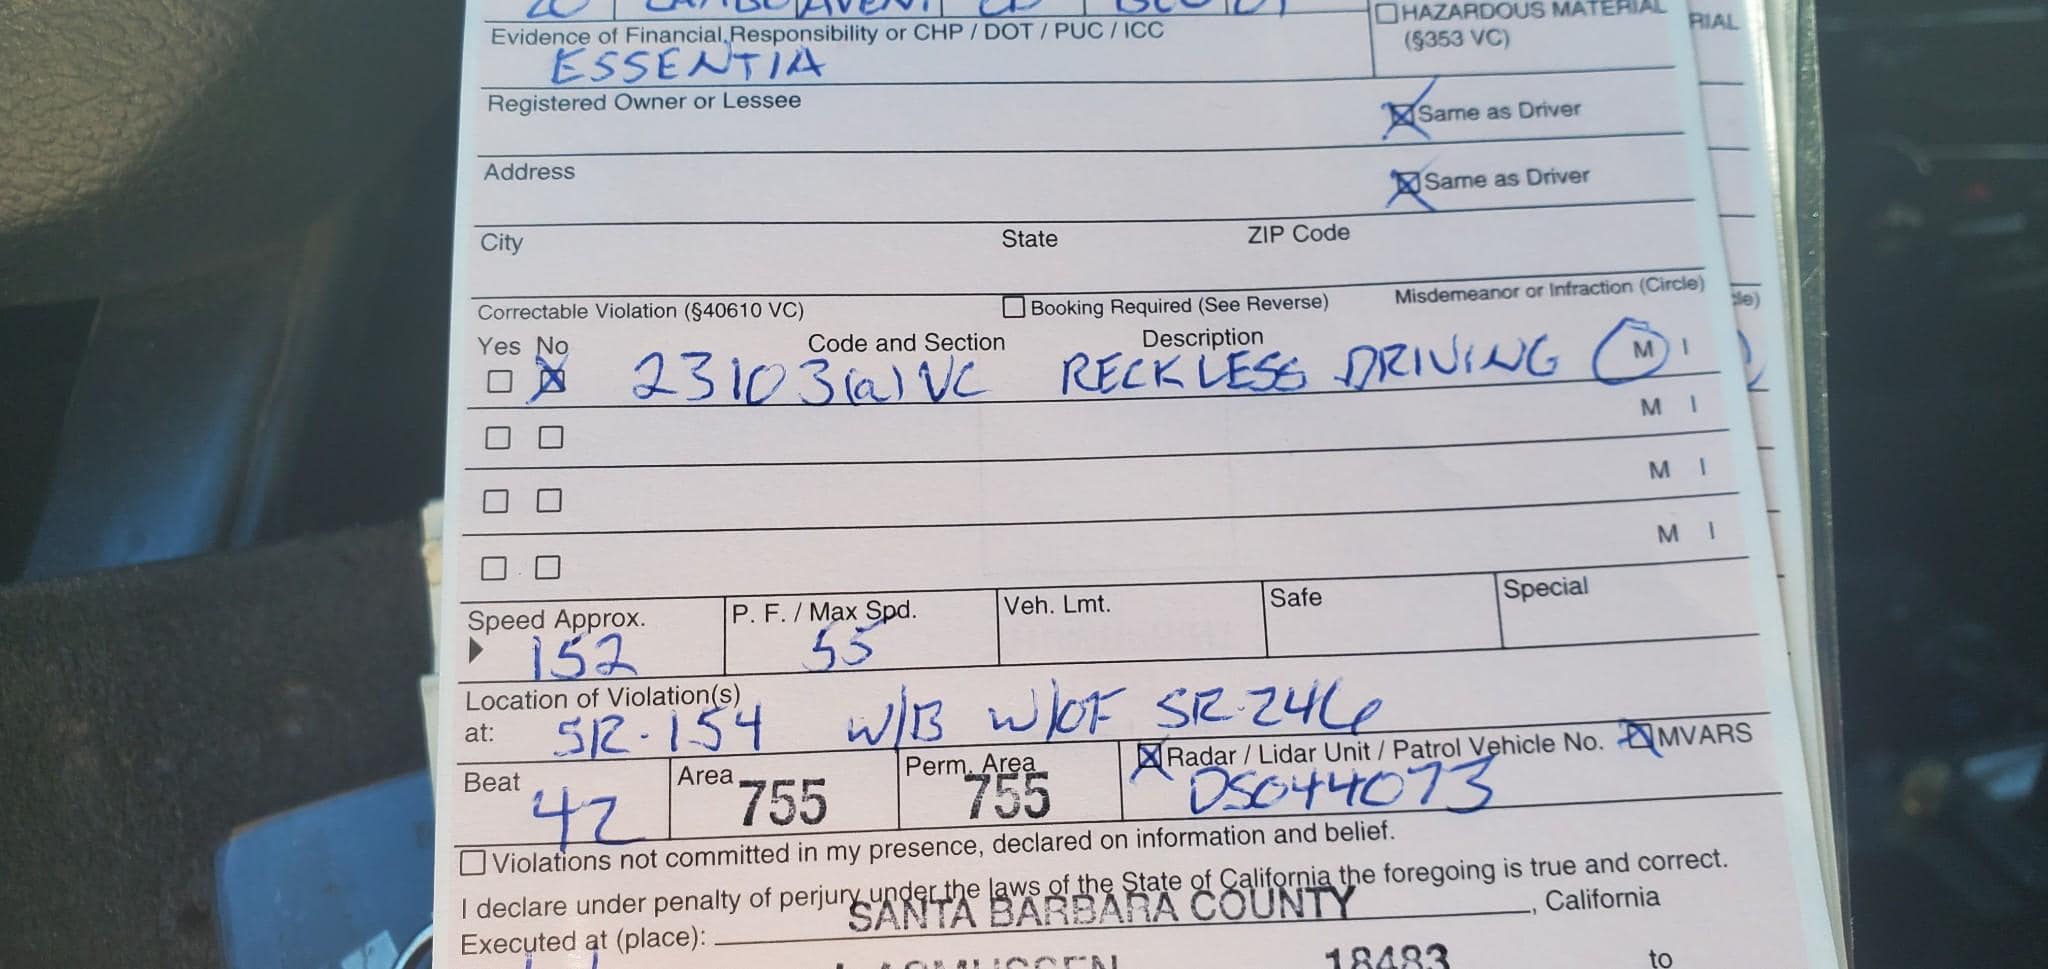 HAZARDOUS MATERIAL RIAL
Evidence of Financial Responsibility or CHP / DOT / PUC / ICC (§353 VC)
ESSENTIA
Registered Owner or Lessee Same as Driver
Address Same as Driver
City State ZIP Code
Correctable Violation (§40610 VC) Booking Required (See Reverse) Misdemeanor or Infraction (Circle) cle)
Yes No Code and Section Description
23103(a) VC RECKLESS DRIVING M I
M I
M I
M I
Speed Approx. P. F. / Max Spd. Veh. Lmt. Safe Special
152 55
Location of Violation(s)
at: SR-154 W/B W/OF SR-246
Beat Area Perm. Area Radar / Lidar Unit / Patrol Vehicle No. MVARS
42 755 755 DS044073
Violations not committed in my presence, declared on information and belief.
I declare under penalty of perjury under the laws of the State of California the foregoing is true and correct.
SANTA BARBARA COUNTY
Executed at (place): , California
18483 to